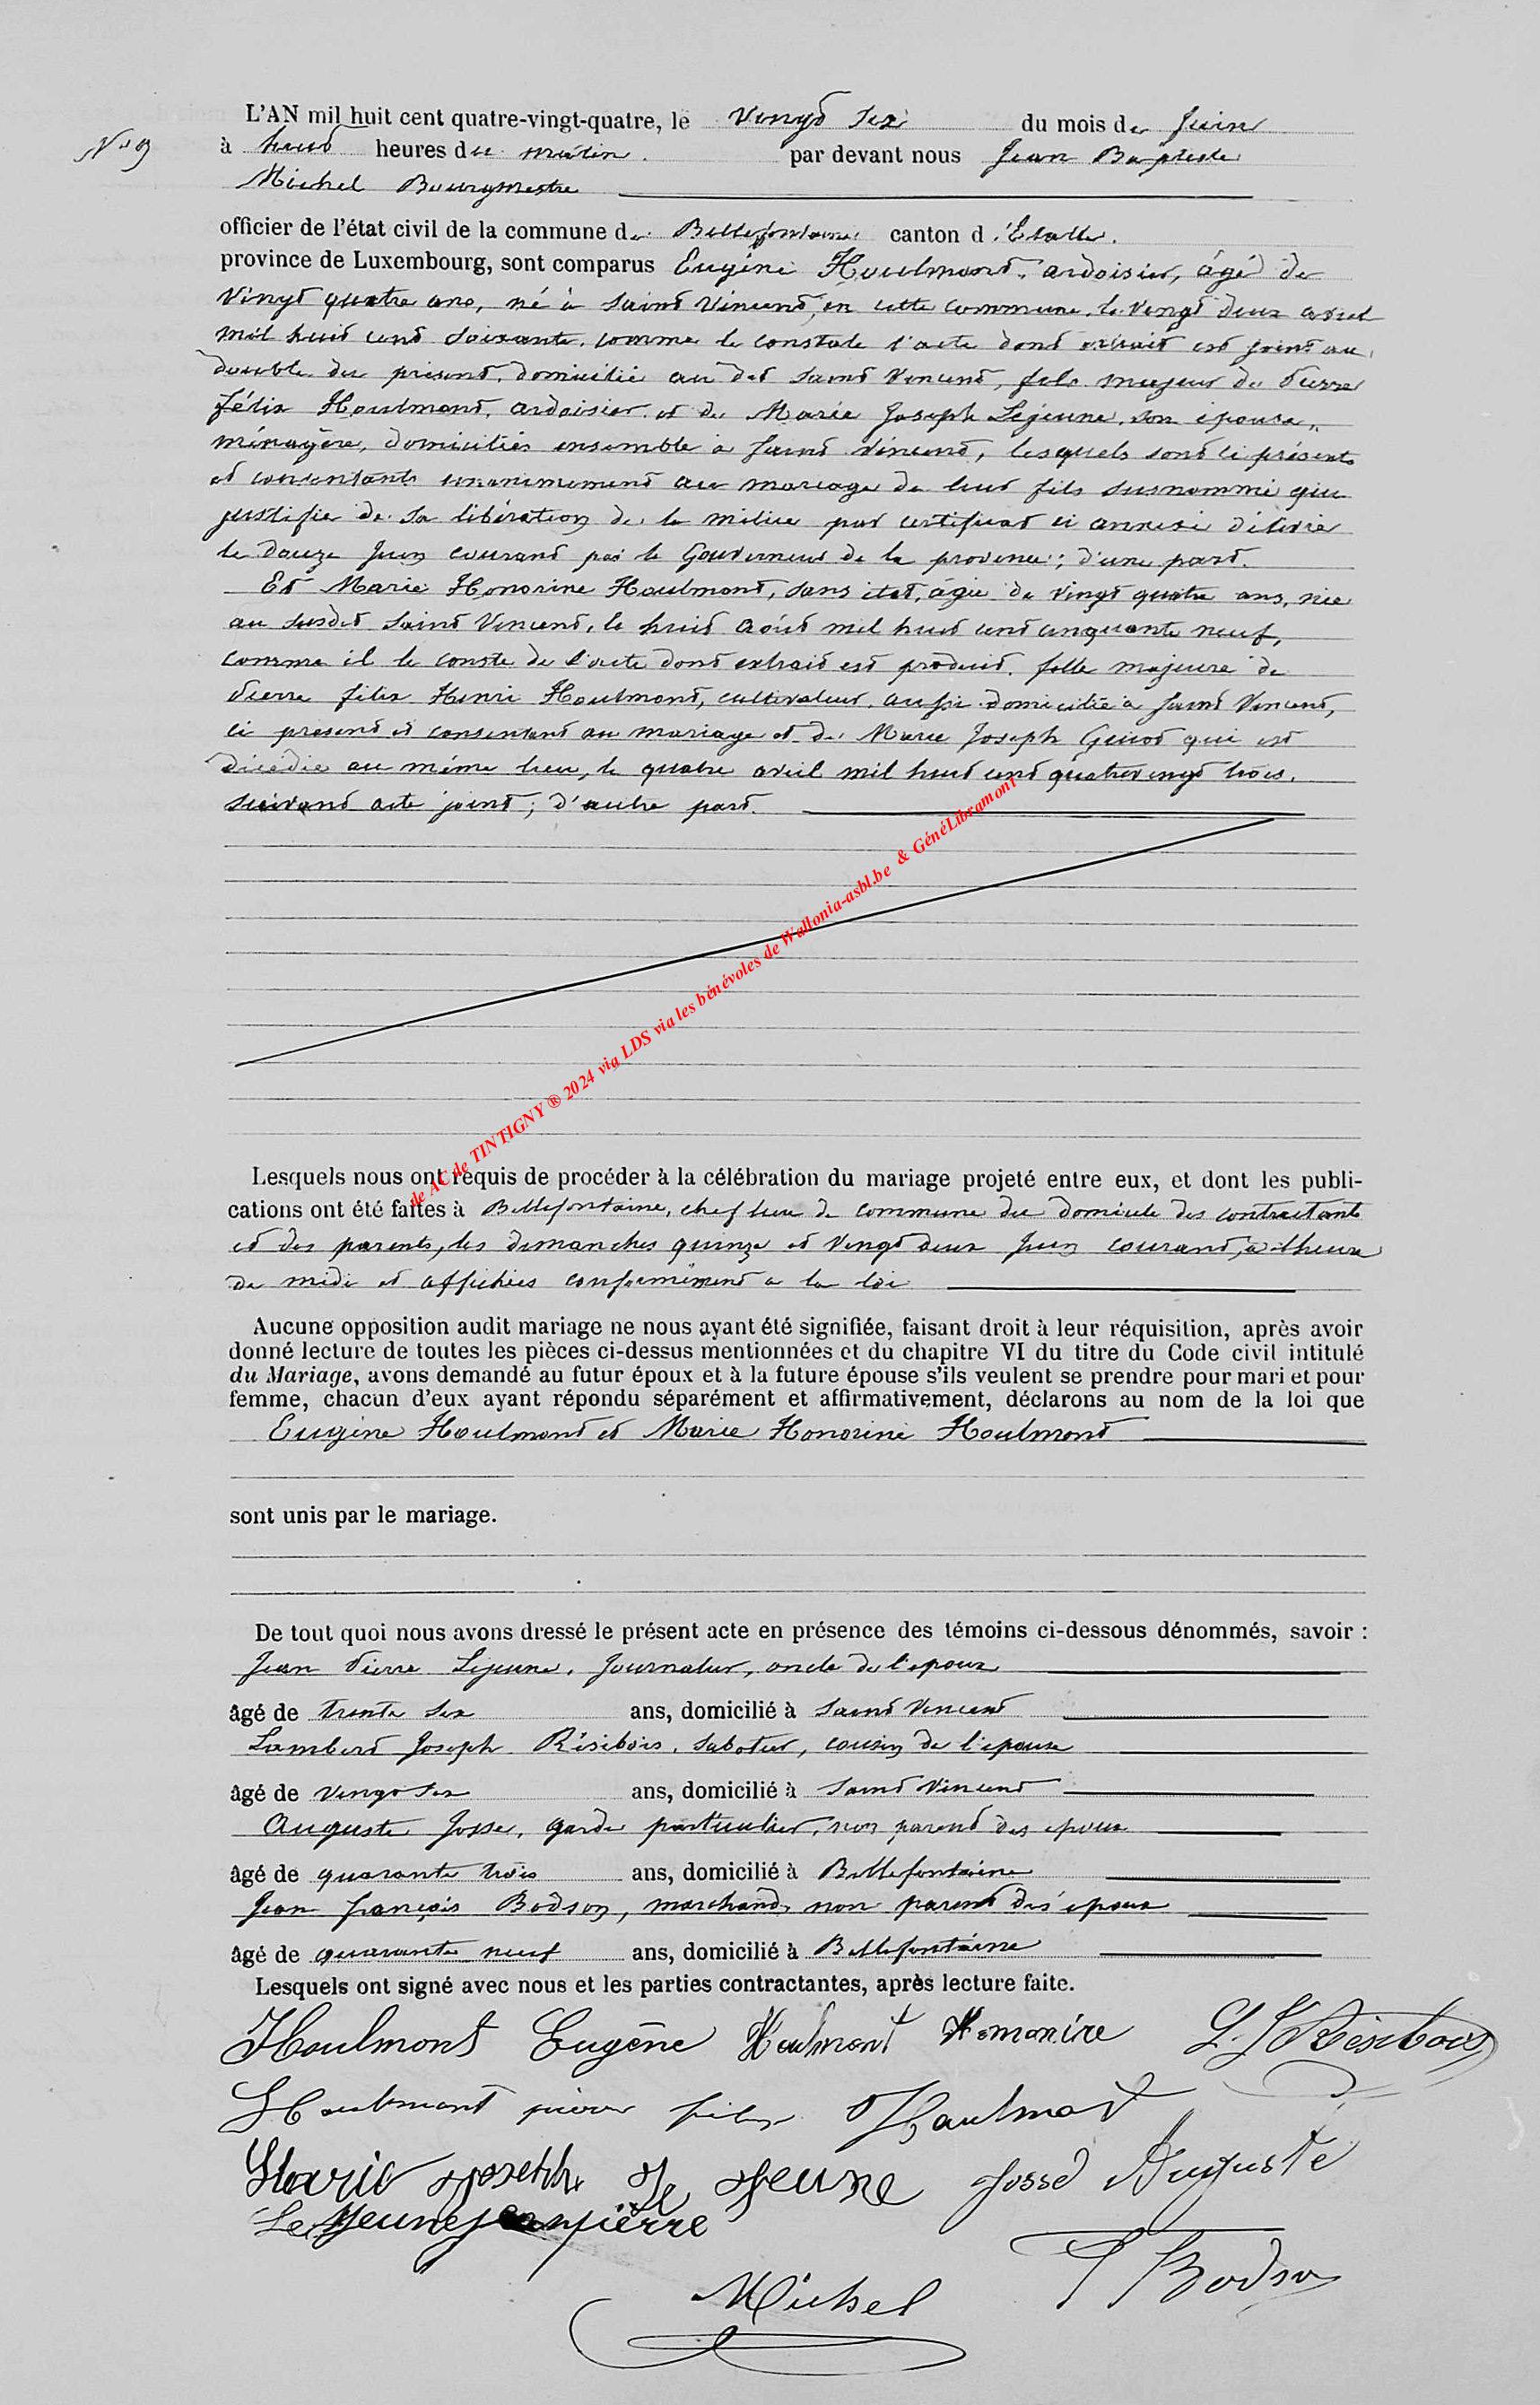 N° 9
L'AN mil huit cent quatre-vingt-quatre, le Vingt six du mois de Juin
à huit heures du matin. par devant nous Jean Baptiste
Michel Bourgmestre
officier de l'état civil de la commune de Bellefontaine canton d'Etalle.
province de Luxembourg, sont comparus Eugène Houlmont, ardoisier, âgé de
Vingt quatre ans, né à Saint Vincent, en cette commune, le vingt deux avril
mil huit cent soixante, comme le constate l'acte dont extrait est joint au
double du présent, domicilié au dit Saint Vincent, fils majeur de Pierre
félix Houlmont, ardoisier et de Marie Joseph Lejeune, son épouse,
ménagère, domiciliés ensemble à Saint Vincent, lesquels sont ci présents
et consentants unanimement au mariage de leur fils susnommé qui
justifie de sa libération de la milice par certificat ci annexé délivré
le douze Juin courant par le Gouverneur de la province; d'une part.
Et Marie Honorine Houlmont, sans état, âgée de vingt quatre ans, née
au susdit Saint Vincent, le huit août mil huit cent cinquante neuf,
comme il le conste de l'acte dont extrait est produit, fille majeure de
Pierre félix Henri Houlmont, cultivateur, aussi domicilié à Saint Vincent,
ci présent et consentant au mariage et de Marie Joseph Guiot qui est
décédée au même lieu, le quatre avril mil huit cent quatrevingt trois,
suivant acte joint; d'autre part.
de AC de TINTIGNY ® 2024 via LDS via les bénévoles de Wallonia-asbl.be & GénéLibramont
Lesquels nous ont requis de procéder à la célébration du mariage projeté entre eux, et dont les publi-
cations ont été faites à Bellefontaine, chef lieu de commune du domicile des contractants
et des parents, les dimanches quinze et vingt deux Juin courant, à l'heure
de midi et affichées conformément à la loi
Aucune opposition audit mariage ne nous ayant été signifiée, faisant droit à leur réquisition, après avoir
donné lecture de toutes les pièces ci-dessus mentionnées et du chapitre VI du titre du Code civil intitulé
du Mariage, avons demandé au futur époux et à la future épouse s'ils veulent se prendre pour mari et pour
femme, chacun d'eux ayant répondu séparément et affirmativement, déclarons au nom de la loi que
Eugène Houlmont et Marie Honorine Houlmont
sont unis par le mariage.
De tout quoi nous avons dressé le présent acte en présence des témoins ci-dessous dénommés, savoir :
Jean Pierre Lejeune, Journalier, oncle de l'époux
âgé de trente six ans, domicilié à Saint Vincent
Lambert Joseph Résibois, sabotier, cousin de l'épouse
âgé de vingt six ans, domicilié à Saint Vincent
Auguste Josse, garde particulier, non parent des époux
âgé de quarante trois ans, domicilié à Bellefontaine
Jean françois Bodson, marchand, non parent des époux
âgé de quarante neuf ans, domicilié à Bellefontaine
Lesquels ont signé avec nous et les parties contractantes, après lecture faite.
Houlmont Eugène Houlmont Homonire L. J. Résibois
Houlmont pierre felix Houlmont
Marie Joseph Le Jeune Josse Auguste
Le Jeune jean pierre
Bodson
Michel